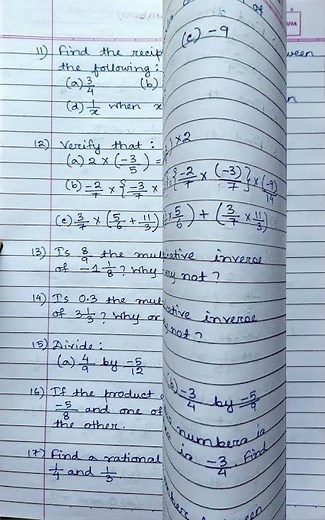 11) Find the recip
the following :
(a) 3/4 (b)
(c) -9
(d) 1/x when x
12) Verify that :
(a) 2 × (-3/5) = ) × 2
(b) -2/7 × {-3/7 × {-2/7 × (-3)/7} × (-9)/14
(c) 3/7 × (5/6 + 11/3) × 5/6) + (3/7 × 11/3)
13) Is 8/9 the mul cative inverse
of -1 1/8 ? Why ay not ?
14) Is 0.3 the mul cative inverse
of 3 1/3 ? Why or y not ?
15) Divide :
(a) 4/9 by -5/12 (b) -3/4 by -5/9
16) If the product numbers is
-5/8 and one of is -3/4. Find
the other.
17) Find a rational
1/4 and 1/3